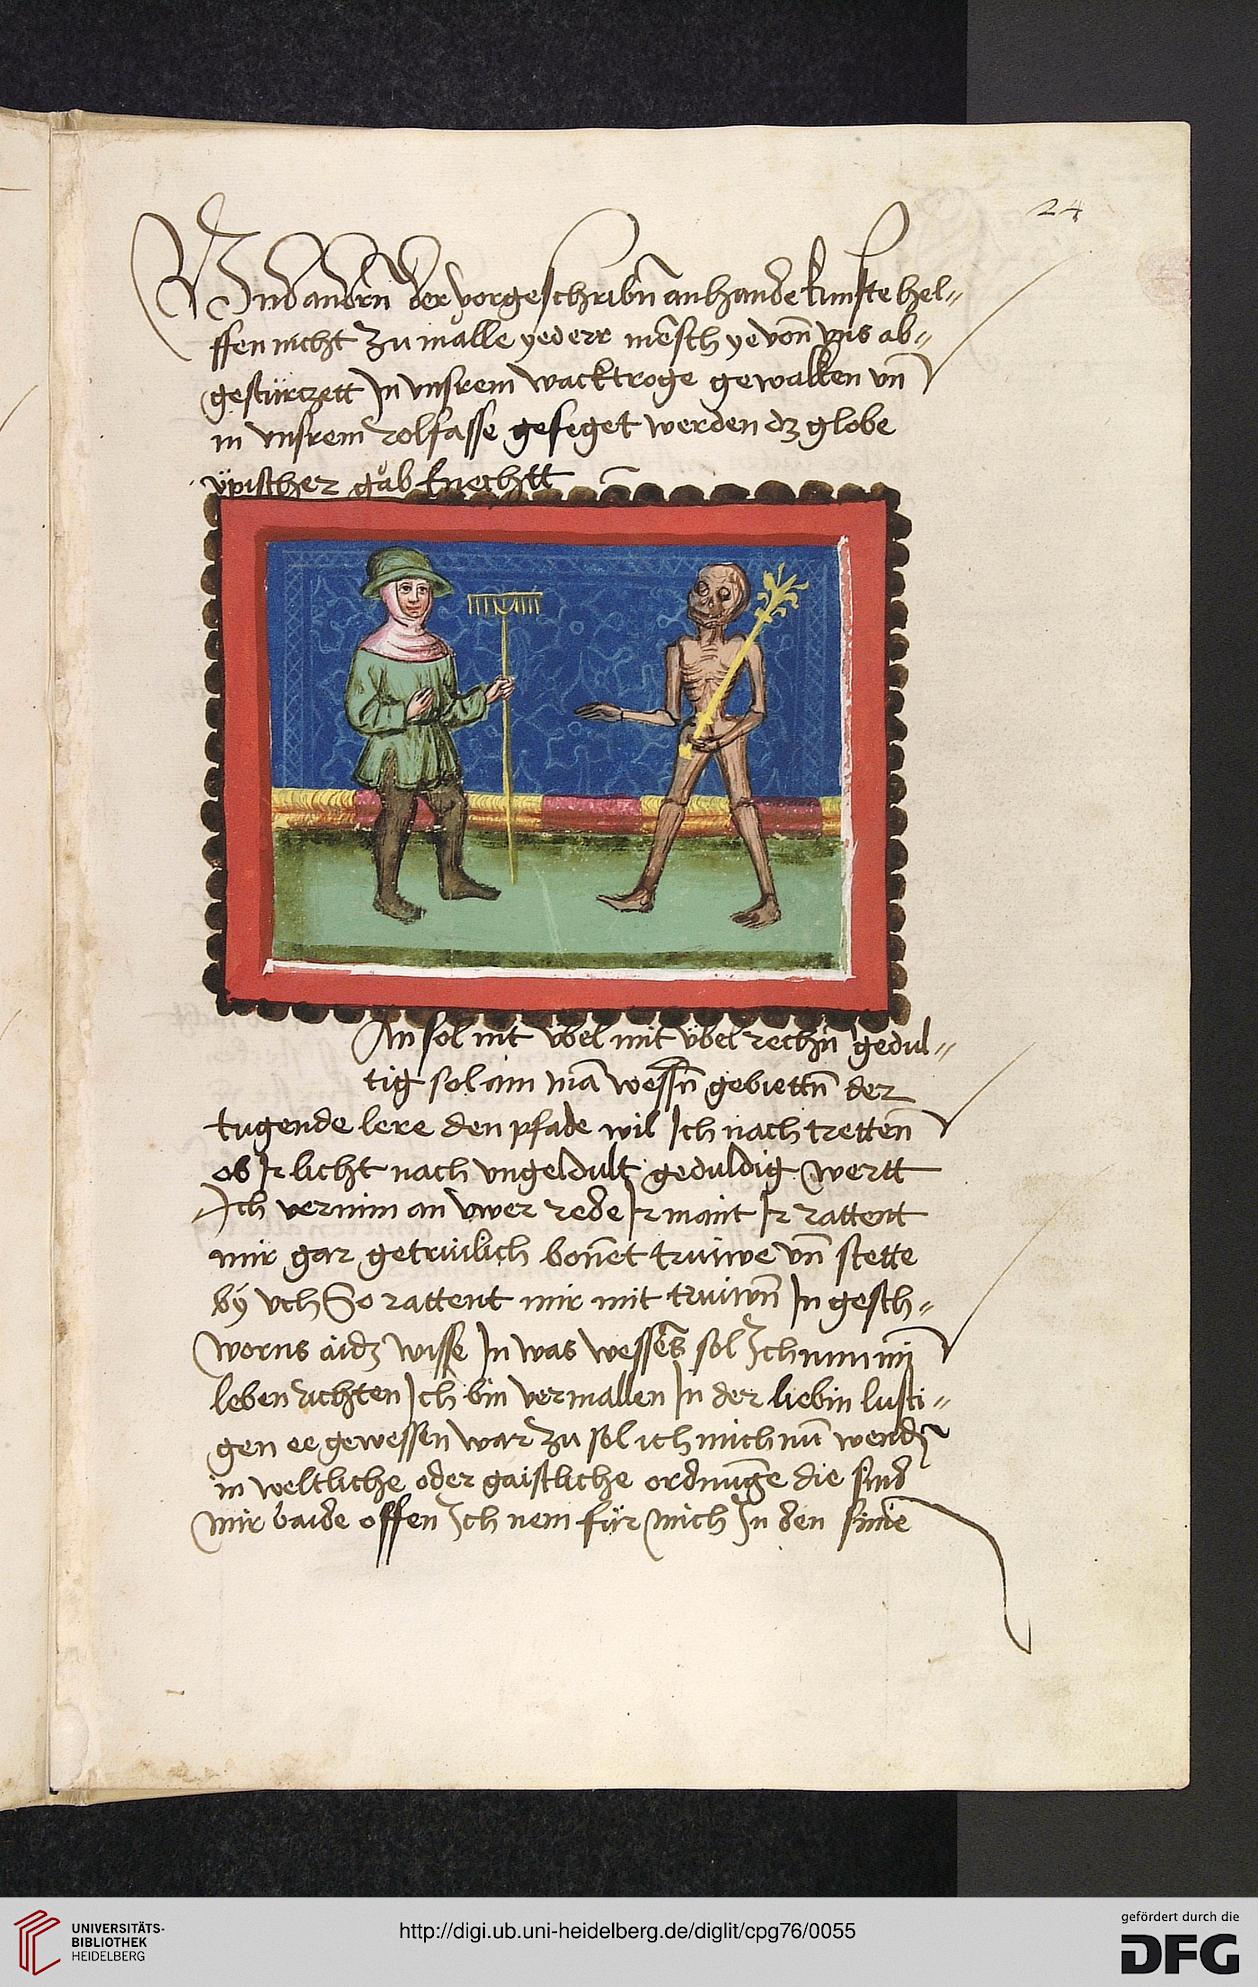 24
Vnd andrn der vorgeschribn̄ an hande kunste hel=
ffen nicht zu mǎlle yederr mēsch ye von̄ vns ab=
gestürczett In vnsrem wacktroge gewalken vn̄
in vnsrem rolfasse gefeget werden dz globe
üpischer gǔb knechtt
An sol nit vbel mit übel rechn̄ gedul=
tig sol ain mā wessn̄ gebiettn̄ der
tugende lere den pfade wil Ich nach tretten̄
ob Ir licht nach vngeldult geduldig wertt
Ich vernim an vwer rede Ir maint Ir rattent
mir gar getruilich bon̄et truiwe vn̄ stette
by vch So rattent mir mit truiwn̄ In gesch=
worns aidz wisse In was wessēs sol Ich nun mī
leben richten Ich bin vermallen In der liebin lusti=
gen ee gewessen war zu sol ich mich nū wendn̄
in weltliche oder gaistliche ordnūge die sind
mir baide offen Ich nem für mich In den sinne
UNIVERSITÄTS-
BIBLIOTHEK
HEIDELBERG
http://digi.ub.uni-heidelberg.de/diglit/cpg76/0055
gefördert durch die
DFG